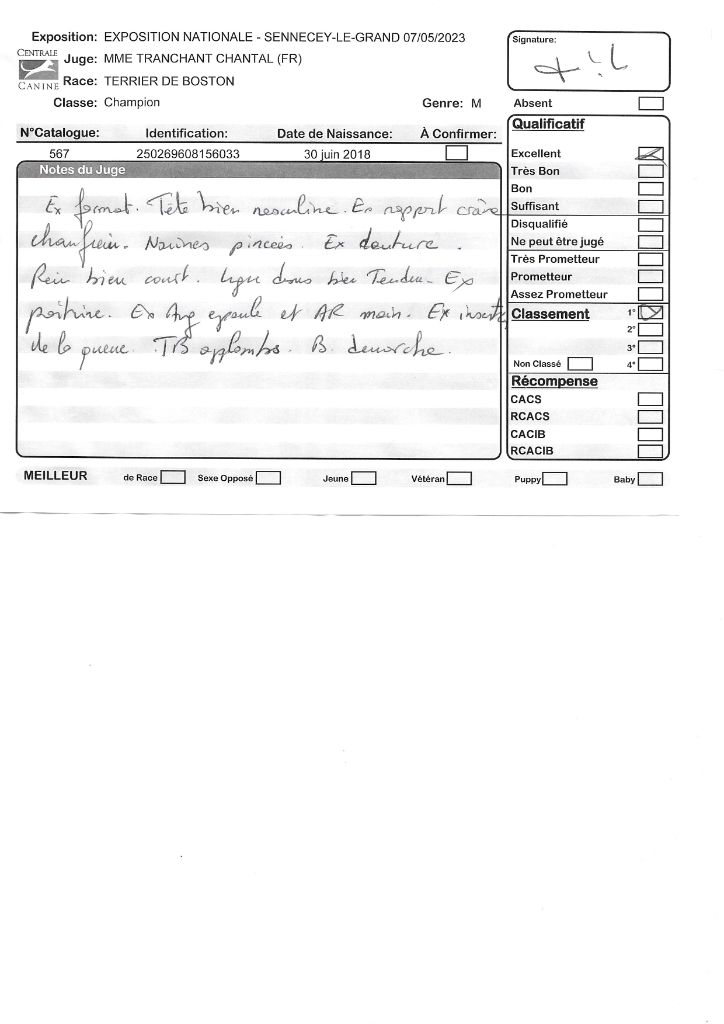 Exposition: EXPOSITION NATIONALE - SENNECEY-LE-GRAND 07/05/2023
CENTRALE CANINE
Juge: MME TRANCHANT CHANTAL (FR)
Race: TERRIER DE BOSTON
Classe: Champion Genre: M
N°Catalogue: Identification: Date de Naissance: À Confirmer:
567 250269608156033 30 juin 2018
Notes du Juge
Ex format. Tête bien masculine. Ex rapport crâne
chanfrein. Narines pincées. Ex denture.
Rein bien court. Ligne dessus bien Tendue. Ex
poitrine. Ex Ang epaule et AR main. Ex insertø
de la queue. TB applombs. B. demarche.
Signature:
Absent
Qualificatif
Excellent
Très Bon
Bon
Suffisant
Disqualifié
Ne peut être jugé
Très Prometteur
Prometteur
Assez Prometteur
Classement 1°
2°
3°
Non Classé 4°
Récompense
CACS
RCACS
CACIB
RCACIB
MEILLEUR de Race Sexe Opposé Jeune Vétéran Puppy Baby